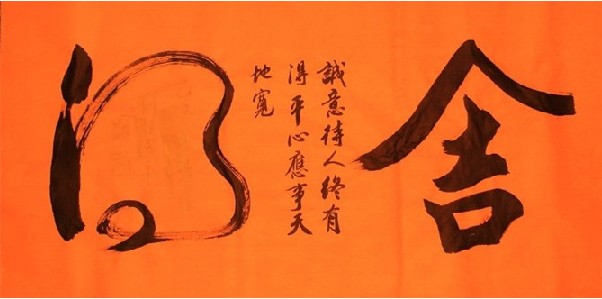 舍得
誠意待人終有
得平心應事天
地寬